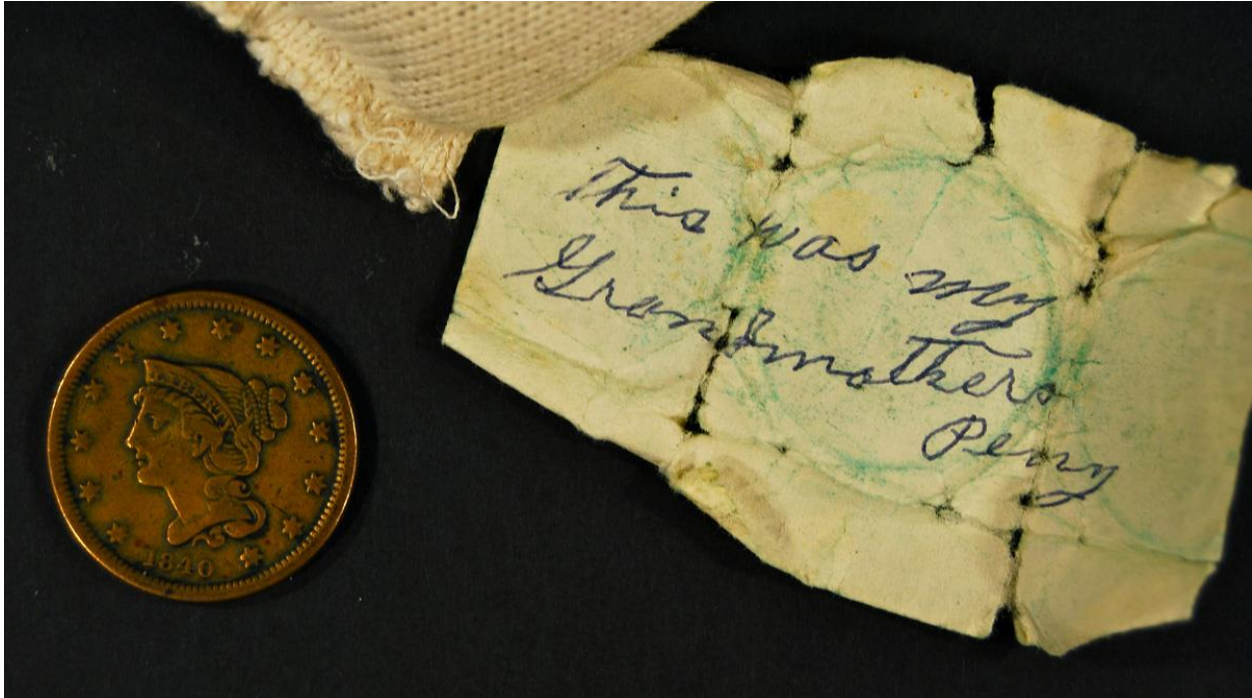 This was my
Grandmothers
Penny
1840